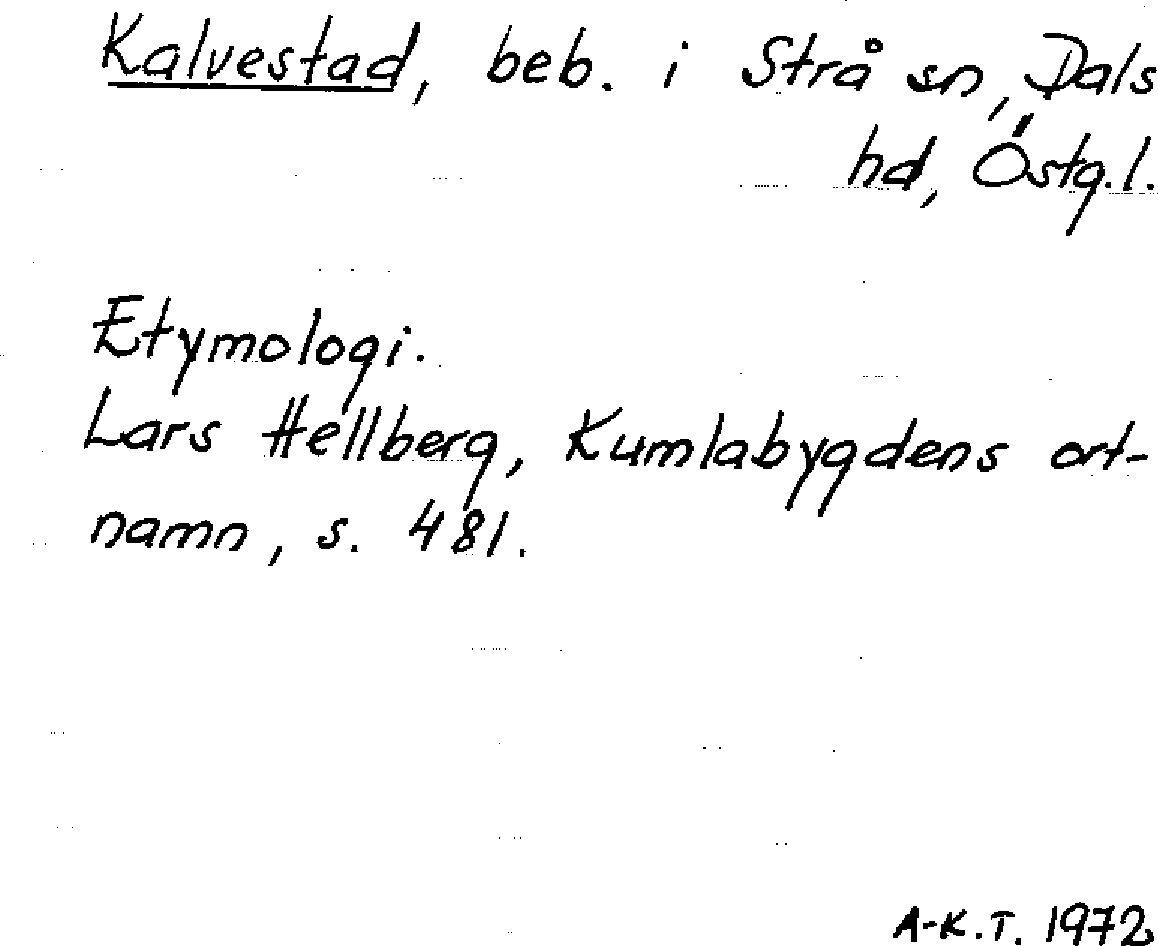 Kalvestad, beb. i Strå sn, Dals
hd, Östg.l.
Etymologi.
Lars Hellberg, Kumlabygdens ort-
namn, s. 481.
A-K.T. 1972